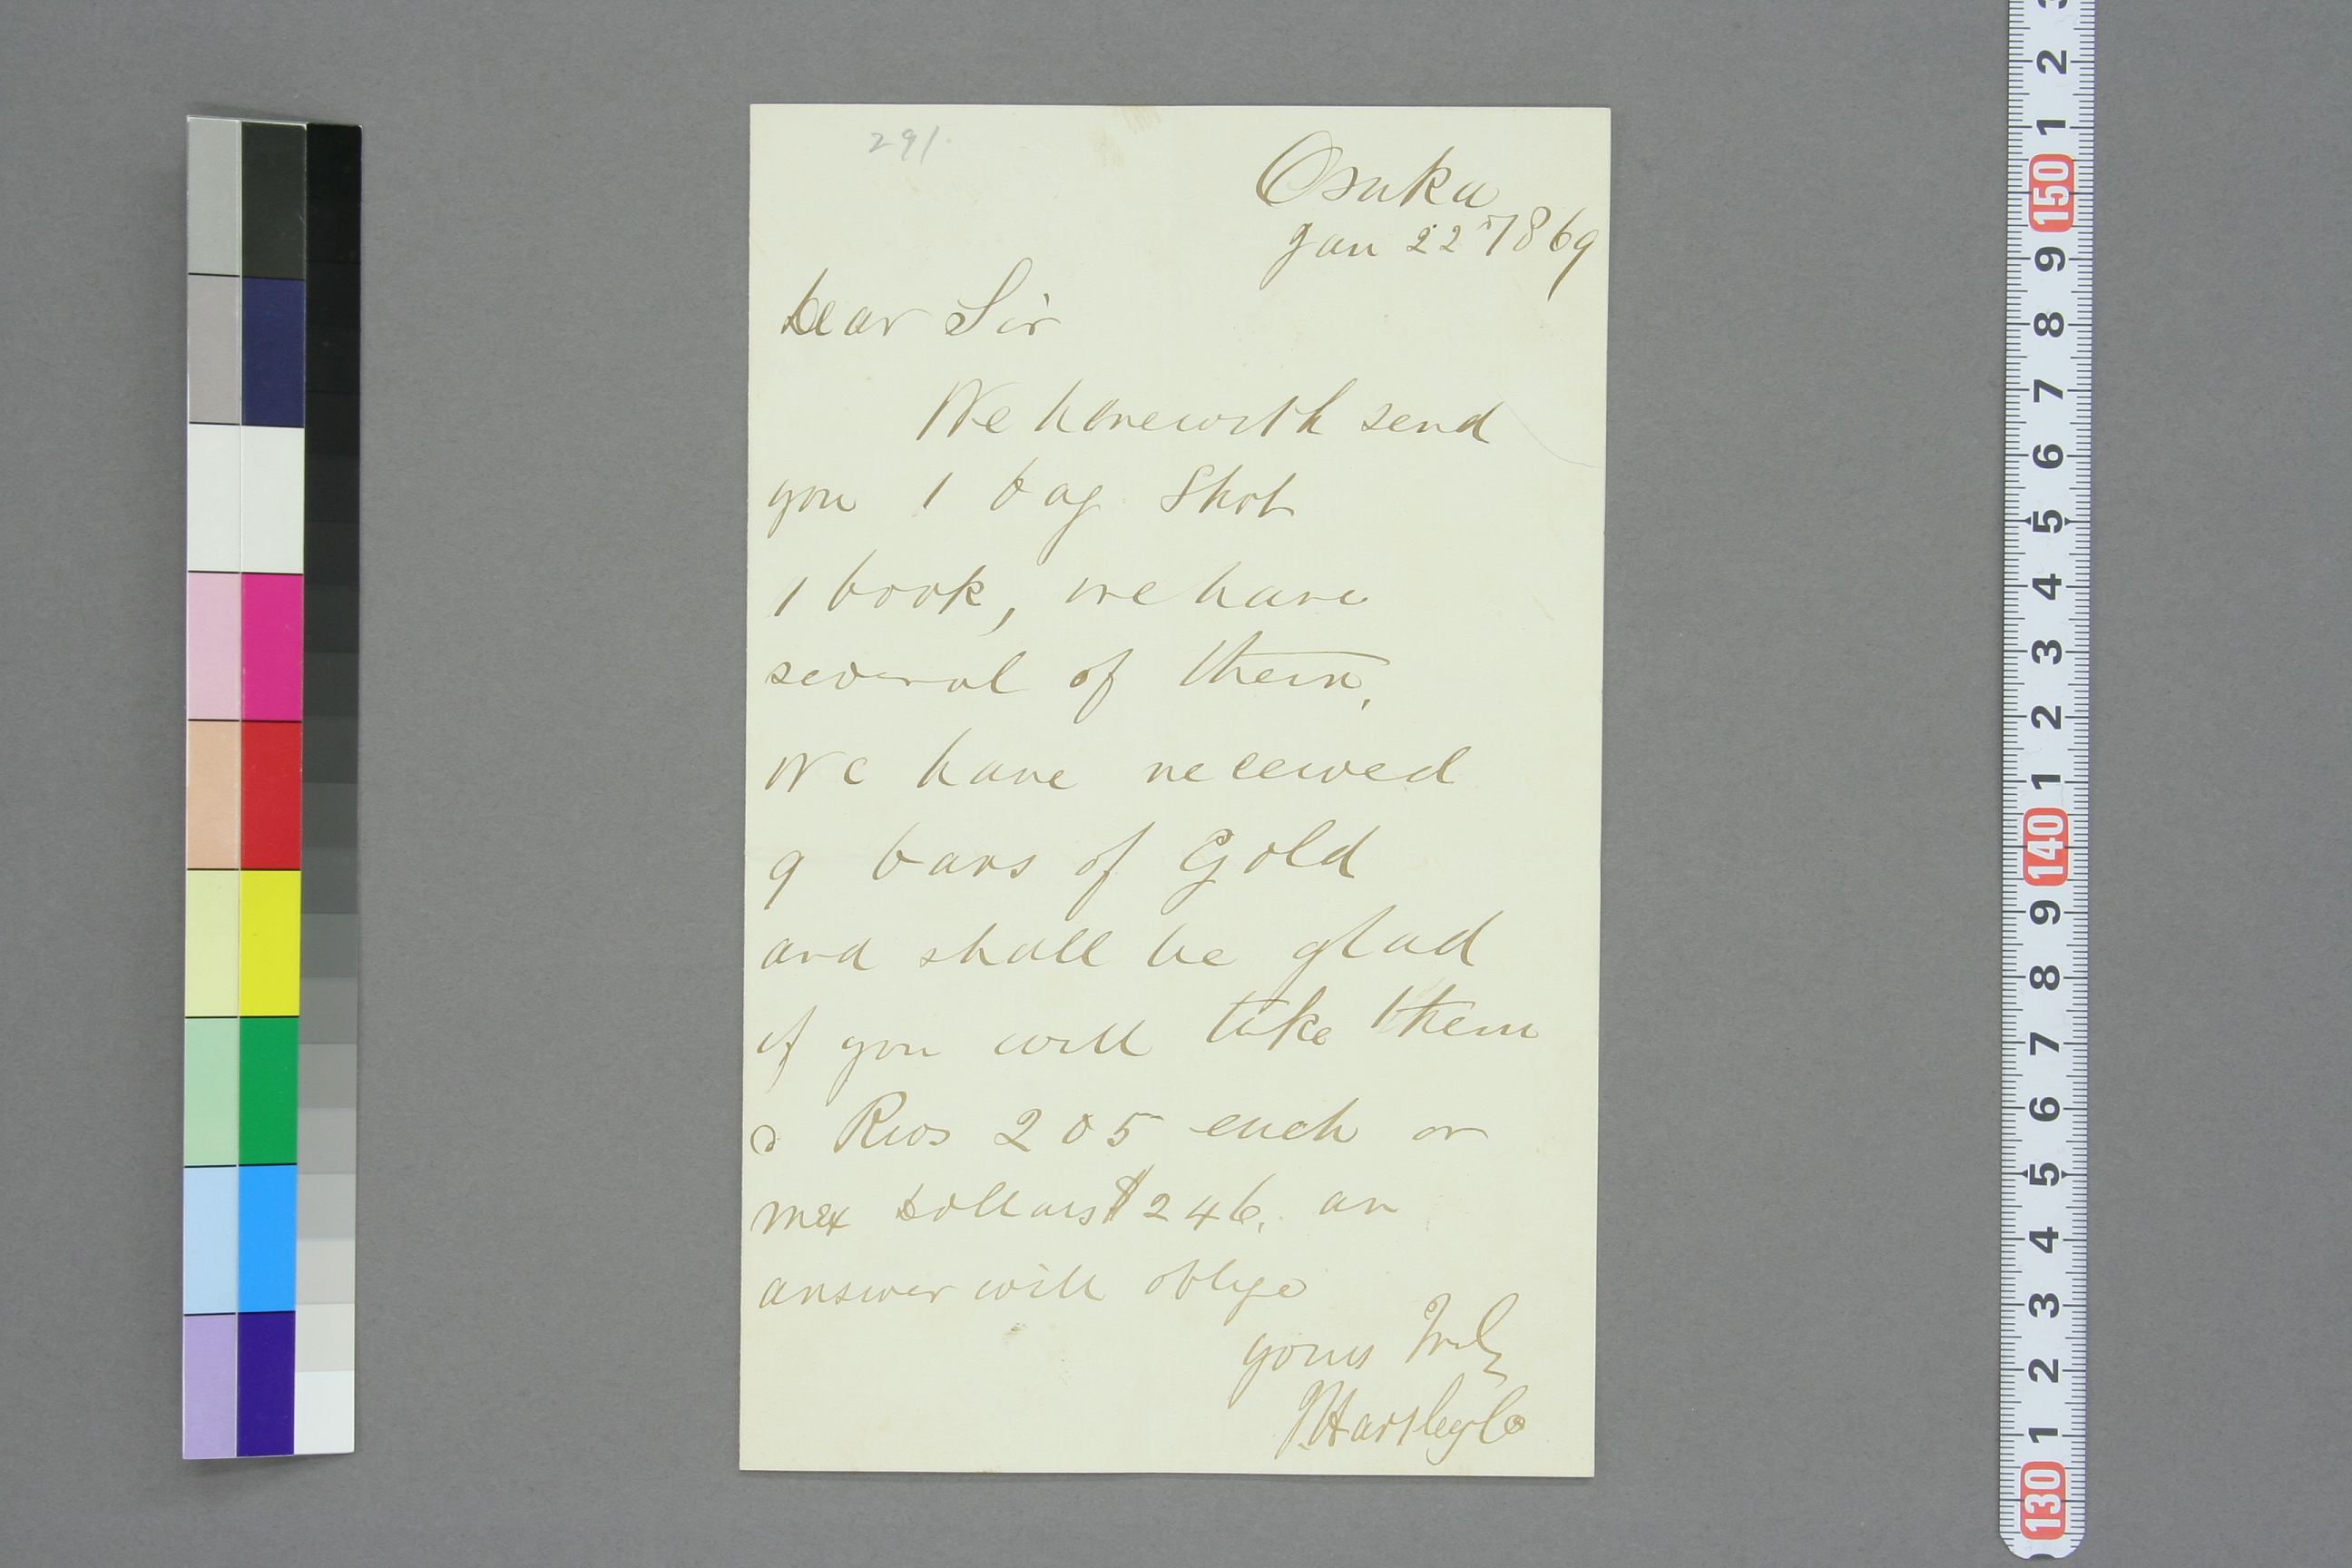 291
Osaka
Jan 22 1869
Dear Sir
We herewith send
you 1 bag Shot
1 book, we have
several of them.
We have received
9 bars of Gold
and shall be glad
if you will take them
@ Rios 205 each or
mex Dollars $246. an
answer will oblige
yours Truly
J. Hartley Co
3
2
1
150
9
8
7
6
5
4
3
2
1
140
9
8
7
6
5
4
3
2
1
130